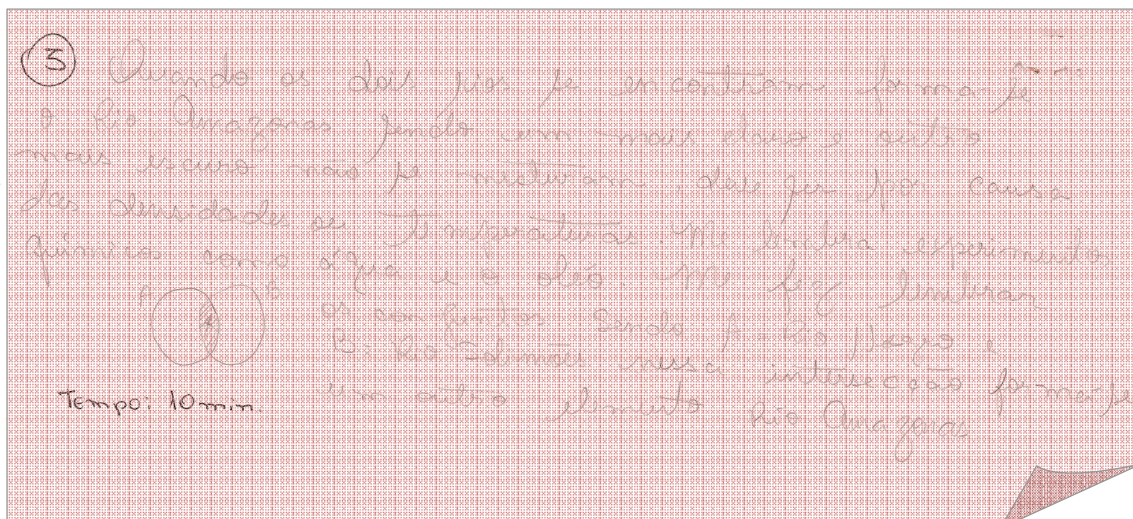 3 Quando os dois rios se encontram forma-se
o Rio Amazonas sendo um mais claro e outro
mais escuro não se misturam, deve ser por causa
das densidades ou temperaturas. Me lembra experimentos
químicos como água e o oléo. Me fez lembrar
A B os conjuntos sendo A = Rio Negro e
B = Rio Solimões nessa intersecção forma-se
Tempo: 10 min. um outro elemento Rio Amazonas